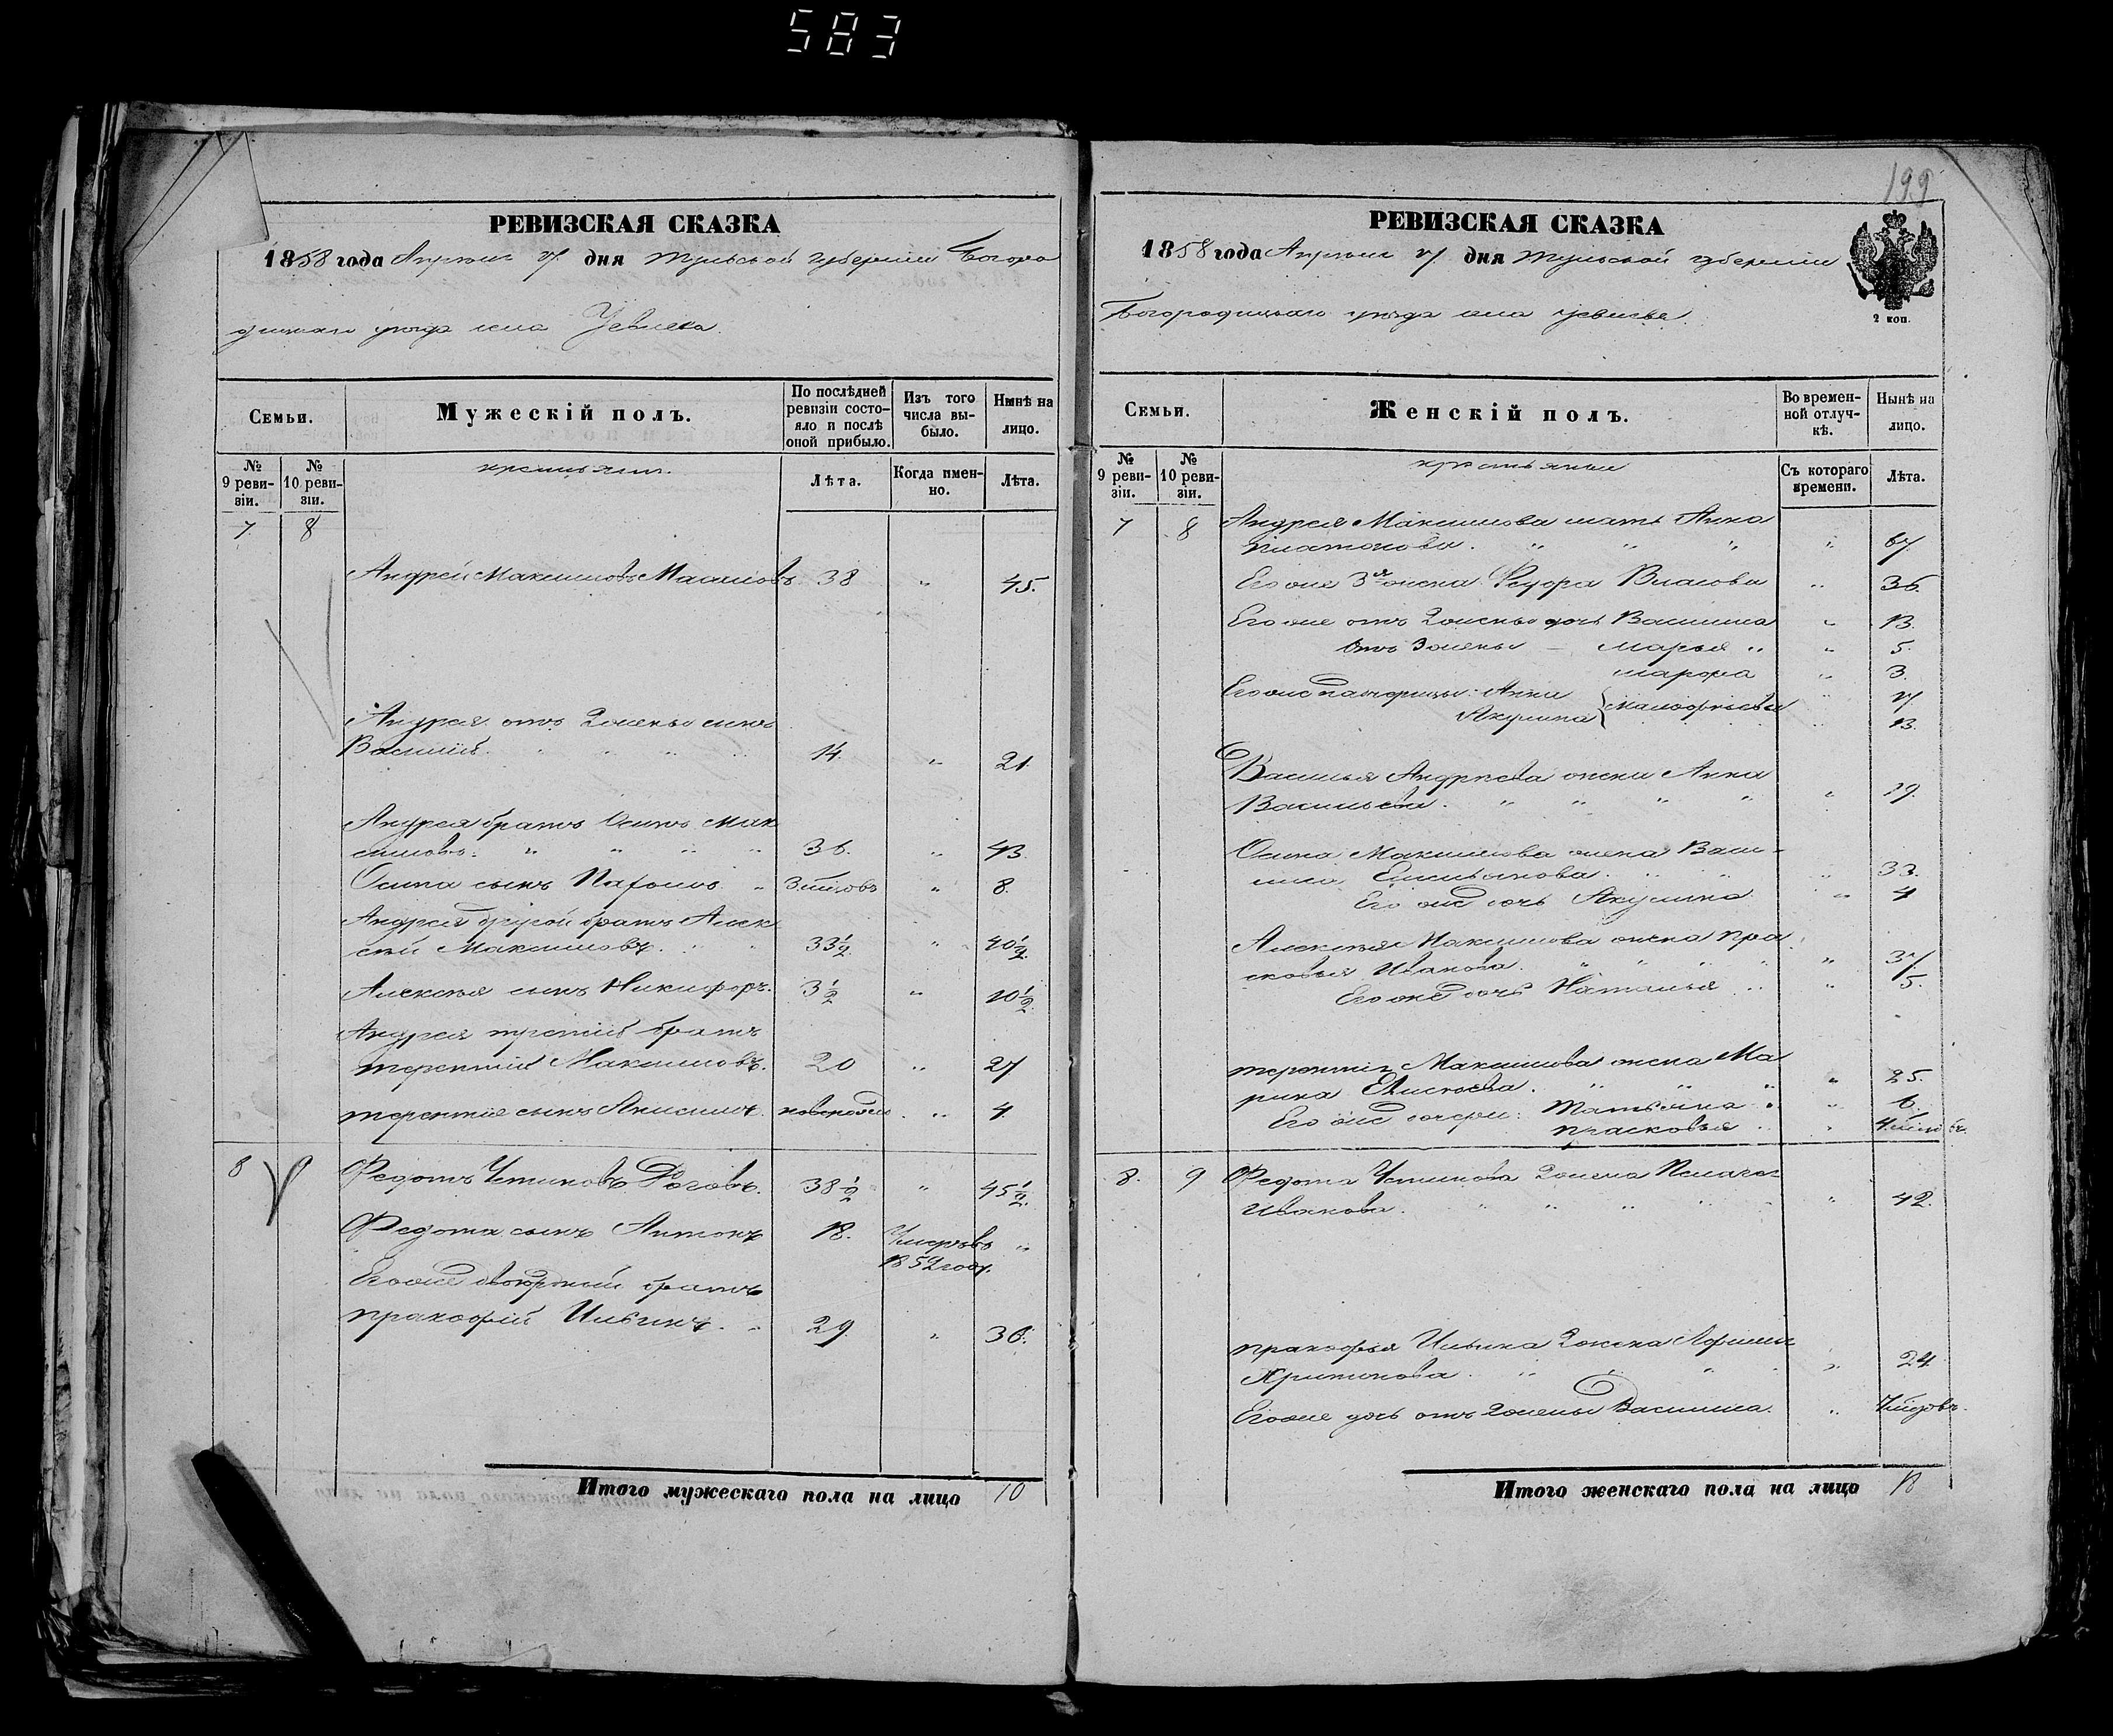 583
РЕВИЗСКАЯ СКАЗКА
1858 года Апреля 7 дня Тульской губернии Богоро
дицкаго уезда села
По послѣдней ревизіи состо-яло и послѣ оной прибыло.
Изъ того числа вы-было.
Нынѣ на лицо.
Семьи.
Мужескій полъ.
№ 9 реви-зіи.
№ 10 реви-зіи.
крестьяне.
Лѣта.
Когда имен-но.
Лѣта.
7 8
Андрей Максимовъ 38 „ 45.
Андрея отъ 2 жены сынъ
Василій 14. „ 21.
Андрея братъ Осипъ Мак
симовъ. 36. „ 43.
Осипа сынъ „ 8.
Андрея другой братъ Алек
сѣй Максимовъ. 33½ „ 40½
Алексѣя сынъ Никифоръ. 3½ „ 10½
Андрея третий братъ
Терентий Максимовъ. 20 „ 27
Терентия сынъ Анисимъ. „ 4.
8 9 Федотъ Устиновъ Роговъ. 38½ „ 45½
Федота сынъ Антонъ 18. Умеръ въ 1852 году. „
Его же двоюродный братъ
Прокофий Ильинъ. 29 „ 36.
Итого мужескаго пола на лицо 10
199
РЕВИЗСКАЯ СКАЗКА
1858 года Апреля 7 дня Тульской губернии
Богородицкаго уезда села
2 коп.
Семьи.
Женскій полъ.
Во времен-ной отлуч-кѣ.
Нынѣ на лицо.
№ 9 реви-зіи.
№ 10 реви-зіи.
крестьянки
Съ котораго времени.
Лѣта.
7 8 Андрея Максимова мать Анна
Платонова. „ „ „ „ 67.
Его же 3я жена Федора Власова „ 36.
Его же отъ 2 жены дочь Василиса „ 13.
Отъ 3 жены — Марья „ „ 5.
Марфа „ 3.
Его же падчерицы: Анна „ 17
Акулина „ 13.
Василья Андреева жена Анна
Васильева. „ „ „ „ „ 19.
Осипа Максимова жена Васи-
лиса Емельянова. „ 33.
Его же дочь Акулина „ 4
Алексѣя Максимова жена Пра
сковья Иванова. „ 37.
Его же дочь Наталья „ 5.
Терентия Максимова жена Ма
рина „ 25.
Его же дочери: Татьяна „ 6.
Прасковья „
8. 9 Федота Устинова 2 жена Пелагея
Иванова. „ 42.
Прокофья Ильина 2 жена
„ 24
Его же дочь отъ 2 жены Василиса. „
Итого женскаго пола на лицо 18